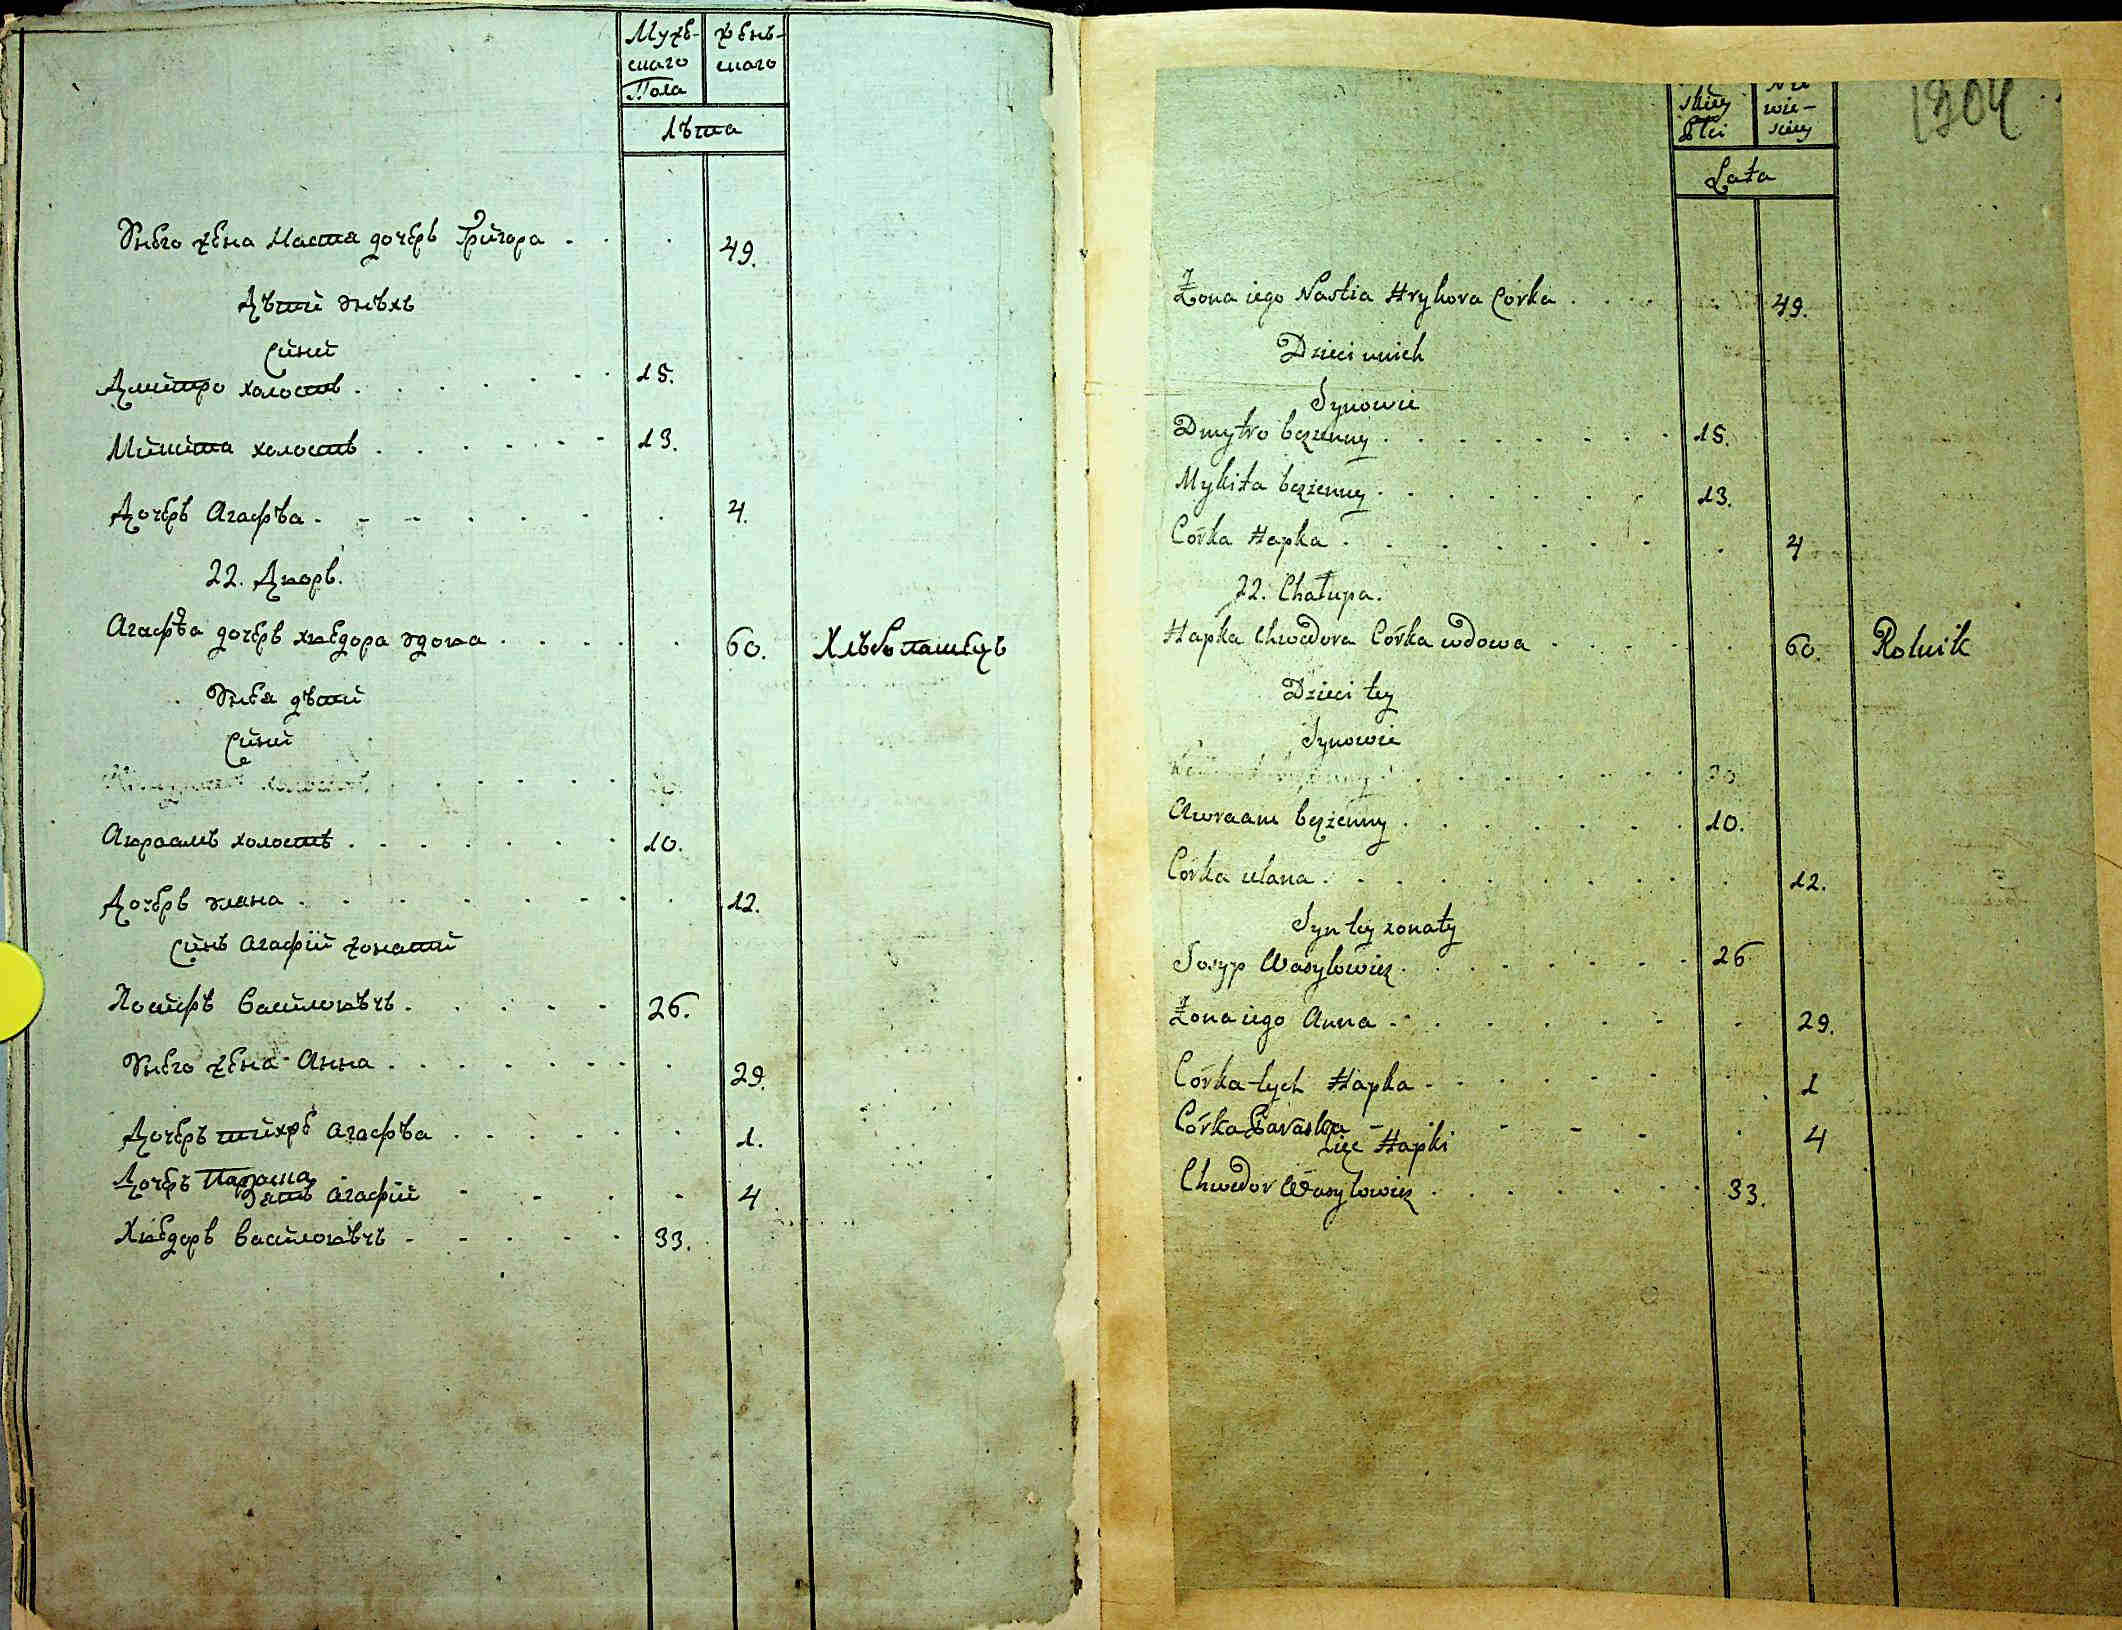 МужЕ-
скаго
Пола
женъ-
скаго
лѣта
Унего жена Настя дочерь Григора 49.
Дѣти унѣхъ
Сини
Дмитро холостъ 15.
Микита холостъ 13.
Дочерь Агафѣа 4.
22. Дворъ.
Агафѣа дочерь хведора вдова 60. Хлѣбопашецъ
Унея дѣти
Сини
холостъ
Авраамъ холостъ 10.
Дочерь улана 12.
Синъ агафiи жонатий
Иосифъ василювѣчъ 26.
Унего жена Анна 29.
Дочеръ тихже агафѣа 1.
Дочеръ Параска 4
Зять агафiи
Хведоръ василювѣчъ 33.
skiey
Płci
wie-
sciey
1804
Lata
Żona iego Nastia Hryhora Corka 49.
Dzieci unich
Synowie
Dmytro bezżenny 15.
Mykita bezżenny 13.
Córka Hapka 4
22. Chałupa.
Hapka Chwedora Córka wdowa 60. Rolnik
Dzieci tey
Synowie
20.
Awraam bezżenny 10.
Córka ulana 12.
Syn tey żonaty
Josyp Wasylowicz 26
Żona iego Anna 29.
Córka tych Hapka 1
Córka Paraska 4
Zięć Hapki
Chwedor Wasylowicz 33.